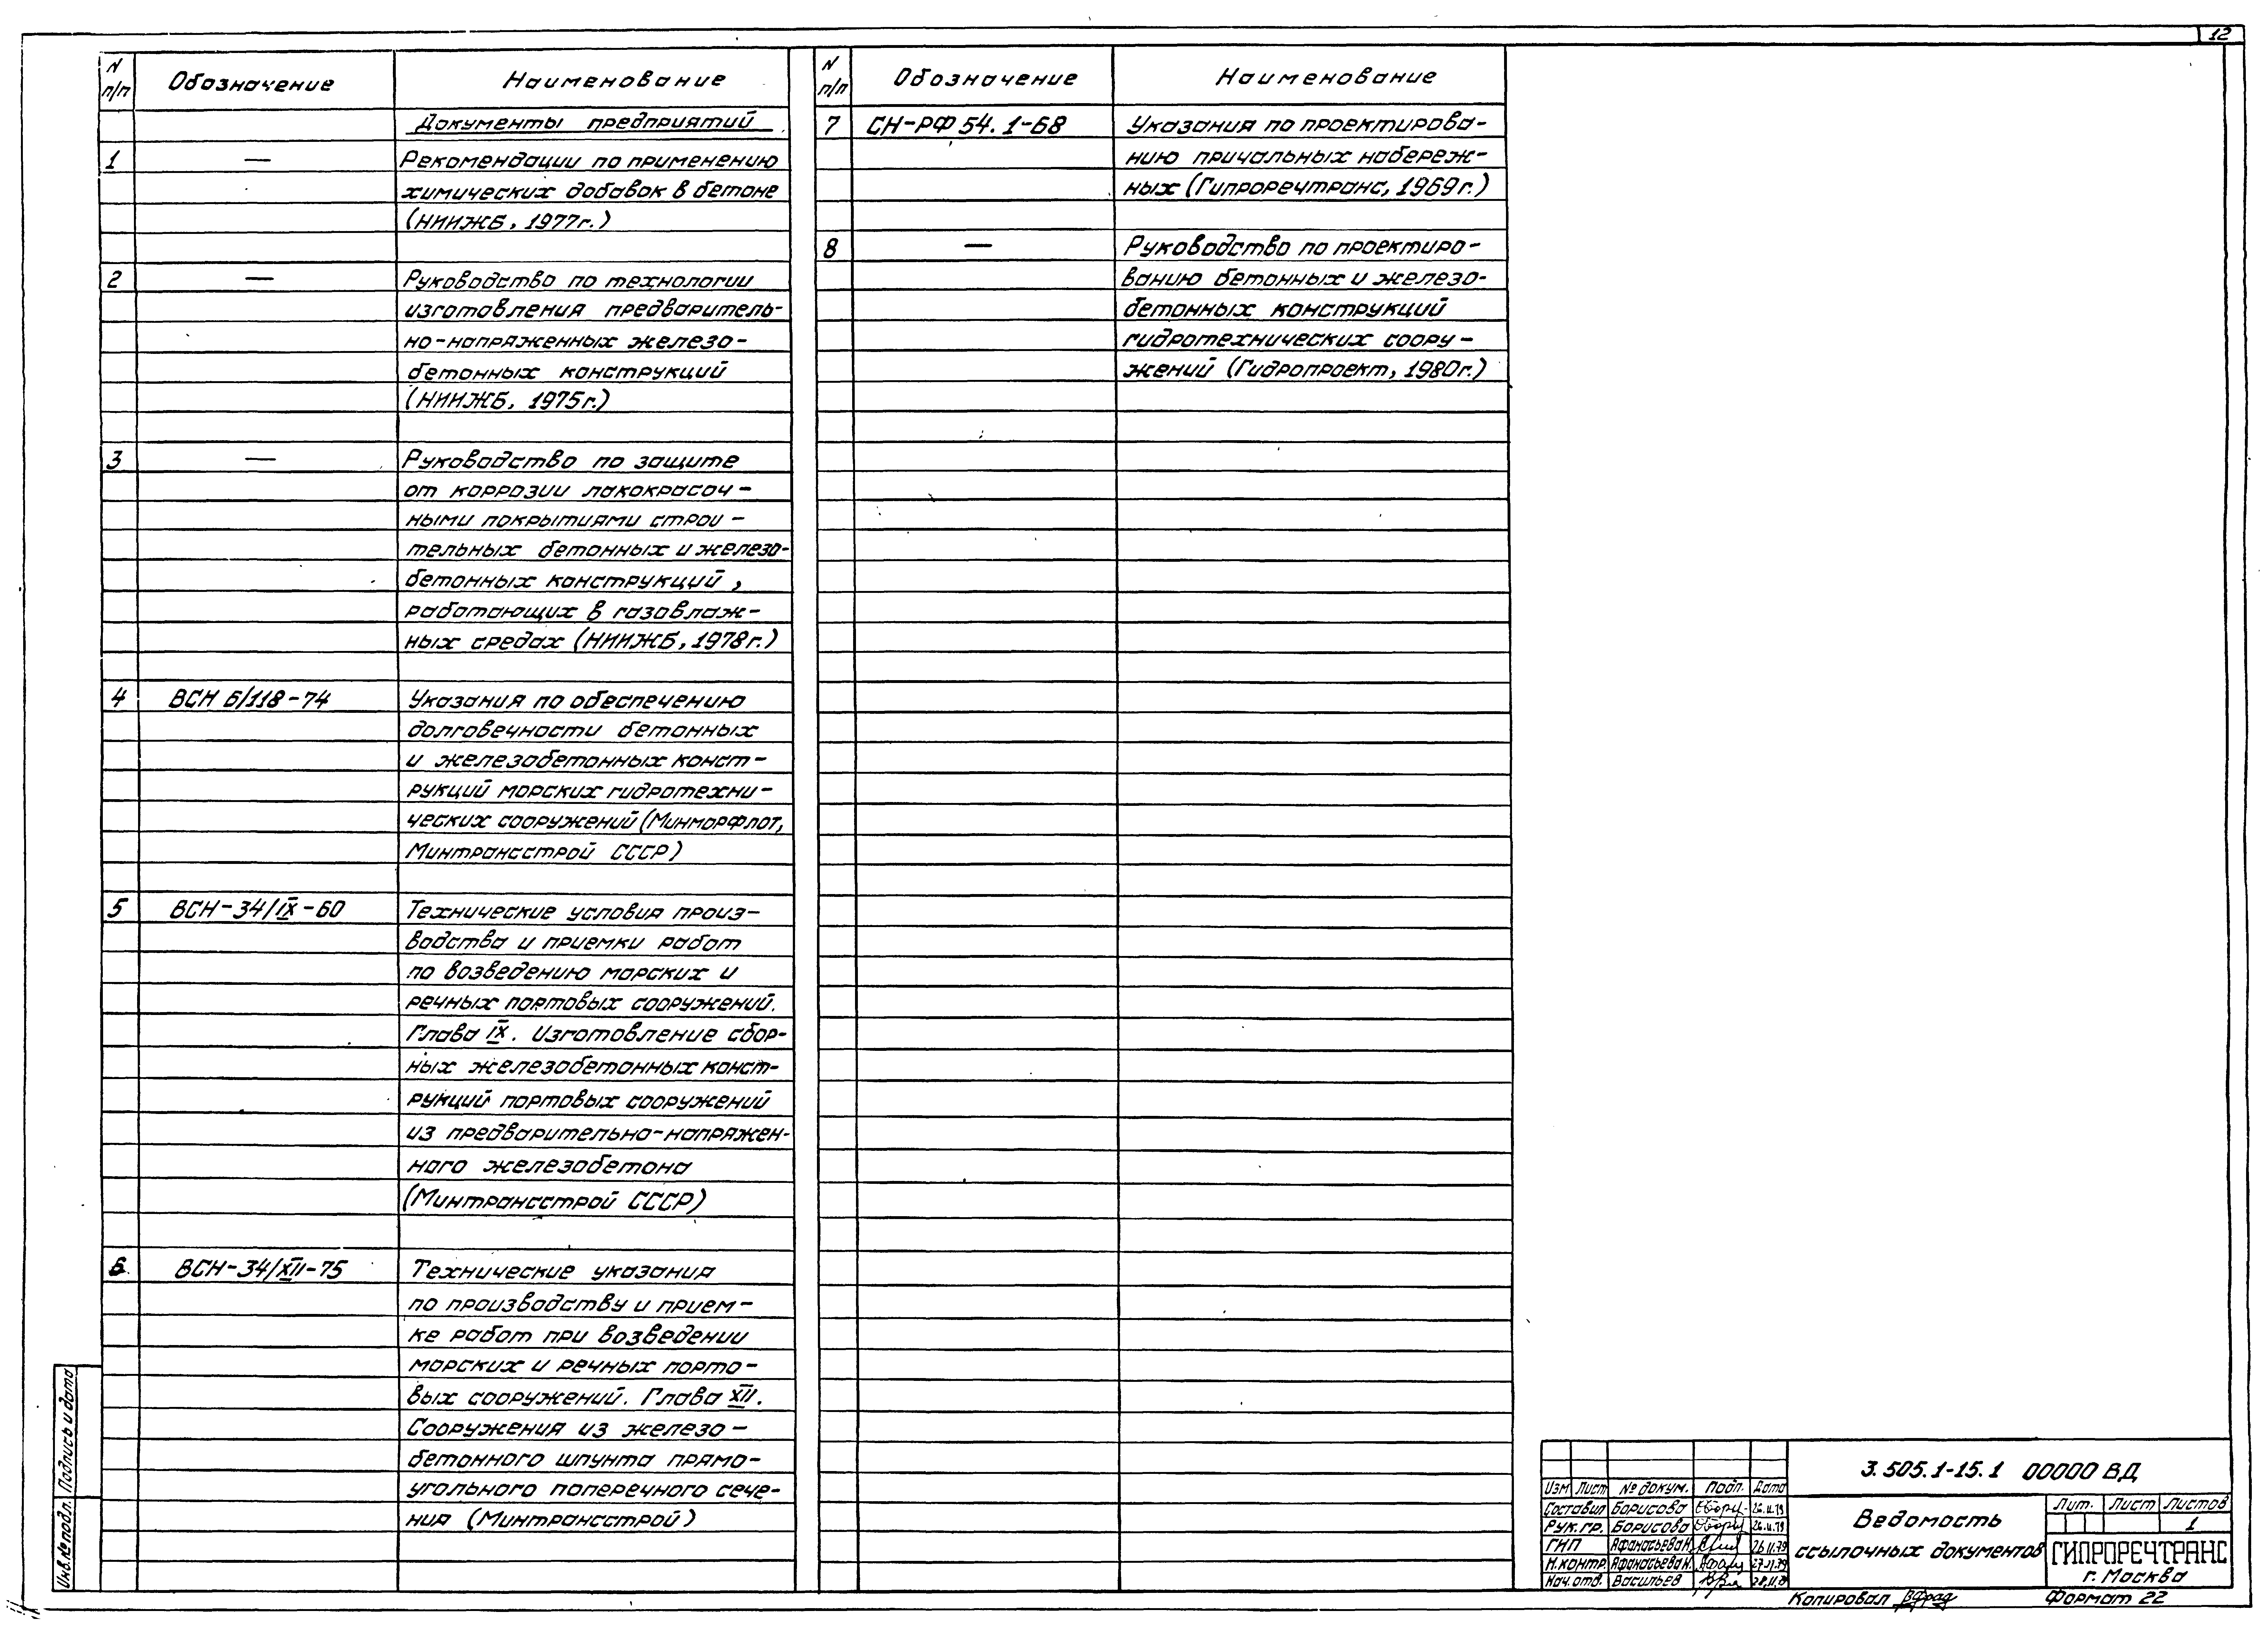 12
N п/п Обозначение Наименование
Документы предприятий
1 — Рекомендации по применению
химических добавок в бетоне
(НИИЖБ, 1977г.)
2 — Руководство по технологии
изготовления предваритель-
но-напряженных железо-
бетонных конструкций
(НИИЖБ, 1975г.)
3 — Руководство по защите
от коррозии лакокрасоч-
ными покрытиями строи-
тельных бетонных и железо-
бетонных конструкций,
работающих в газовлаж-
ных средах (НИИЖБ, 1978г.)
4 ВСН 6/118-74 Указания по обеспечению
долговечности бетонных
и железобетонных конст-
рукций морских гидротехни-
ческих сооружений (Минморфлот,
Минтрансстрой СССР)
5 ВСН-34/IX-60 Технические условия произ-
водства и приемки работ
по возведению морских и
речных портовых сооружений.
Глава IX. Изготовление сбор-
ных железобетонных конст-
рукций портовых сооружений
из предварительно-напряжен-
ного железобетона
(Минтрансстрой СССР)
6 ВСН-34/XII-75 Технические указания
по производству и прием-
ке работ при возведении
морских и речных порто-
вых сооружений. Глава XII.
Сооружения из железо-
бетонного шпунта прямо-
угольного поперечного сече-
ния (Минтрансстрой)
N п/п Обозначение Наименование
7 СН-РФ 54.1-68 Указания по проектирова-
нию причальных набереж-
ных (Гипроречтранс, 1969г.)
8 — Руководство по проектиро-
ванию бетонных и железо-
бетонных конструкций
гидротехнических соору-
жений (Гидропроект, 1980г.)
Подпись и дата
Инв.№ подл.
3.505.1-15.1 00000 ВД
Изм Лист № докум. Подп. Дата
Составил Борисова 26.11.79
Рук.гр. Борисова 26.11.79
ГИП Афанасьева Н. 26.11.79
Н.контр. Афанасьева Н. 27.11.79
Нач.отд. Васильев
Ведомость
ссылочных документов
Лит. Лист Листов
1
ГИПРОРЕЧТРАНС
г. Москва
Копировал
Формат 22